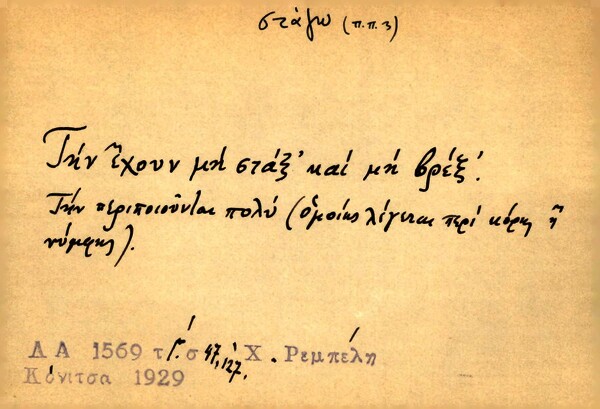 στάζω (π.π.3)
Τήν ἔχουν μή στάξ' καί μή βρέξ'.
Τήν περιποιοῦνται πολύ (ὁμοίως λέγεται περί κόρης ἤ
νύμφης).
Λ Α 1569 τ. Γ' σ 47, 127. Χ. Ρεμπέλη
Κόνιτσα 1929